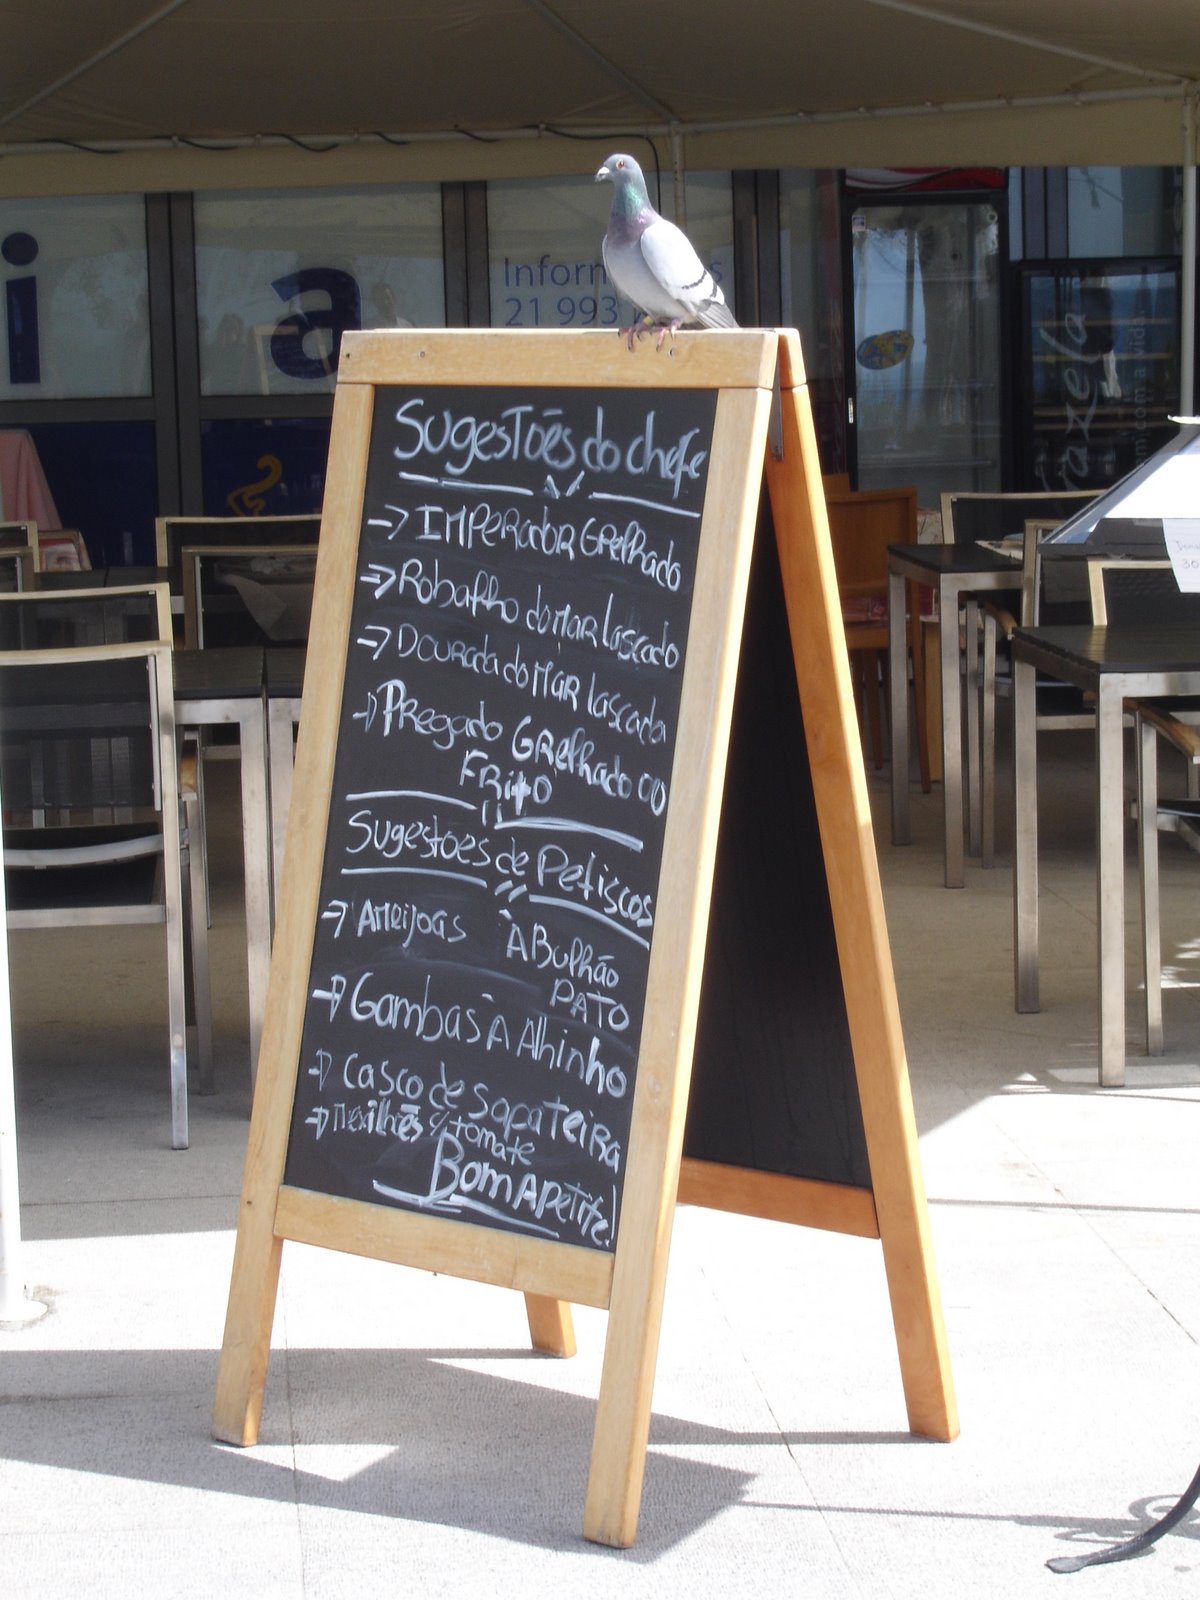 i
a
Inform s
21 993
azela
m com a vida.
30
Sugestões do chefe
→ IMPERADOR GRelhado
→ Robalho do MAR lascado
→ DOURADA do MAR lascada
→ PRegado GRelhado OU
FRito
Sugestoes de Petiscos
→ AMeijoas À Bulhão
PATO
→ Gambas À Alhinho
→ Casco de SapaTeiRA
→ Mexilhões c/ tomate
Bom APeTiTe!